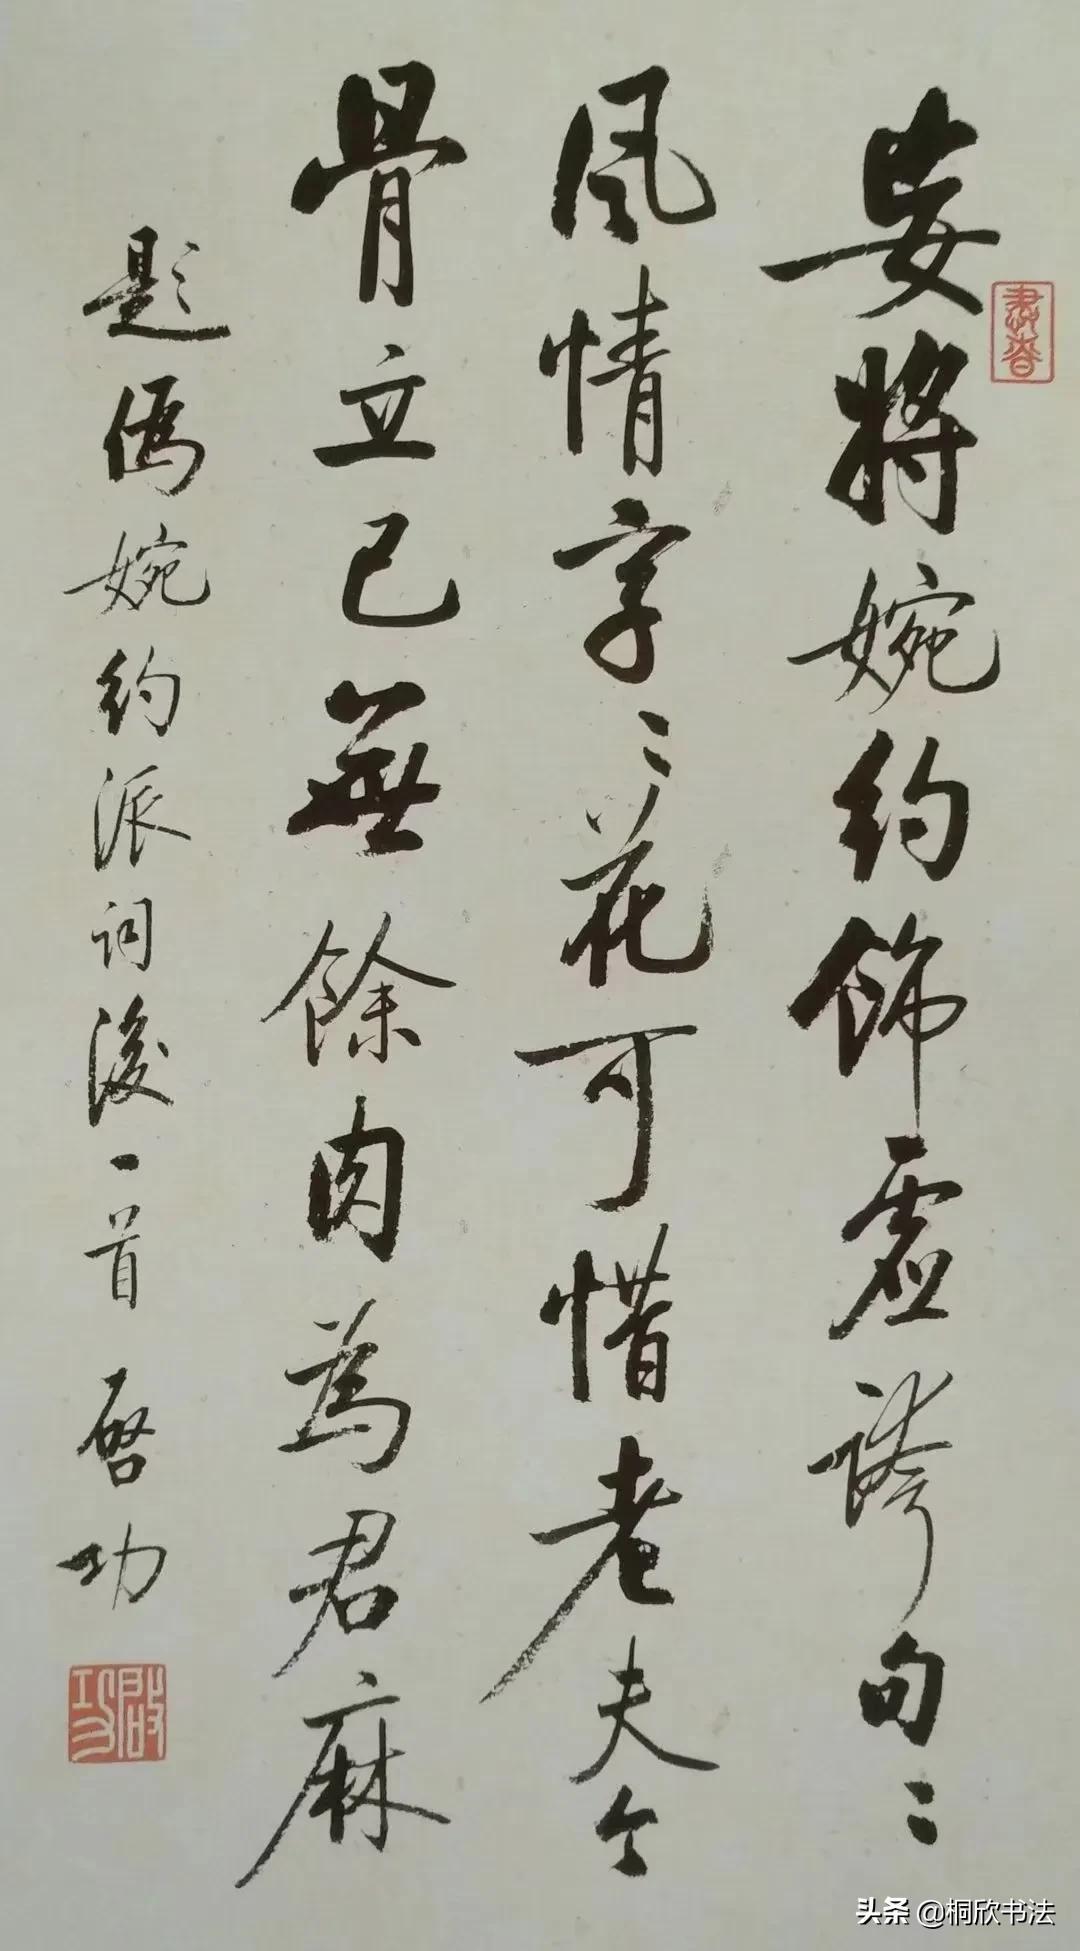 妄將婉約飾虛誇句〻
風情字〻花可惜老夫今
骨立已無餘肉為君麻
題偽婉約派詞後一首 啓功
啟功
头条 @桐欣书法